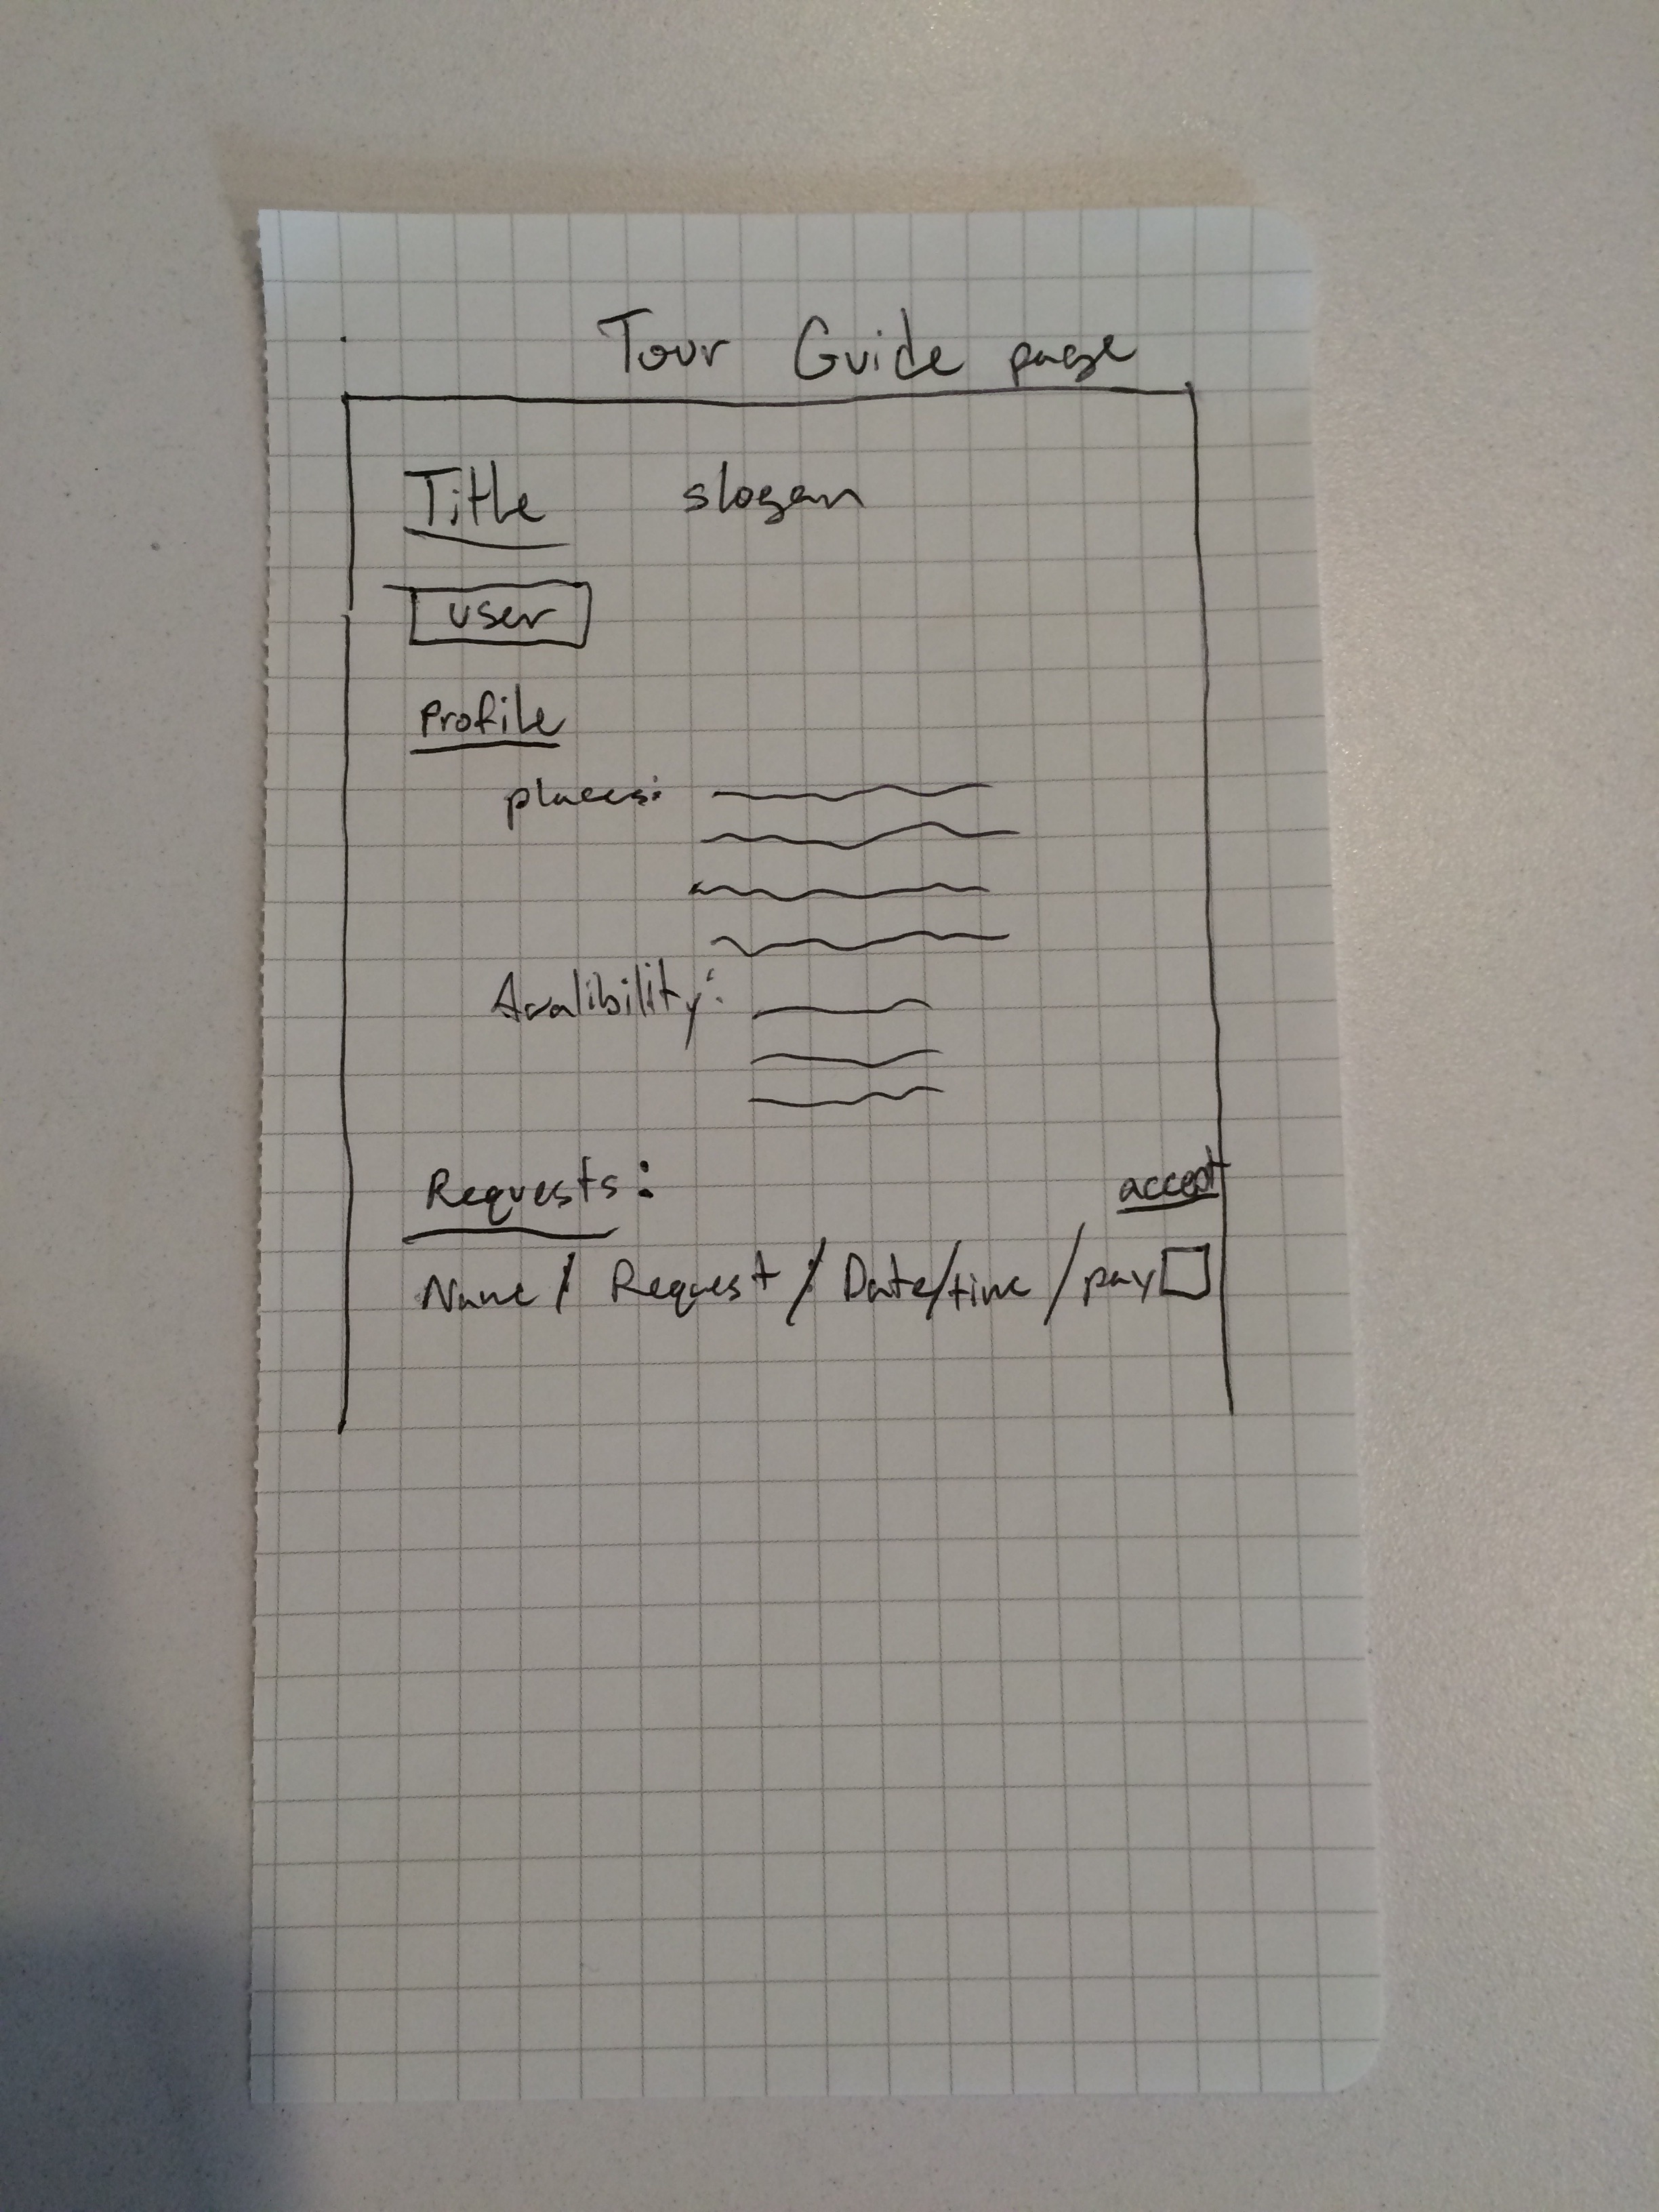 Tour Guide page
Title slogan
user
Profile
places:
Avalibility:
Requests: accept
Name / Request / Date/time / pay